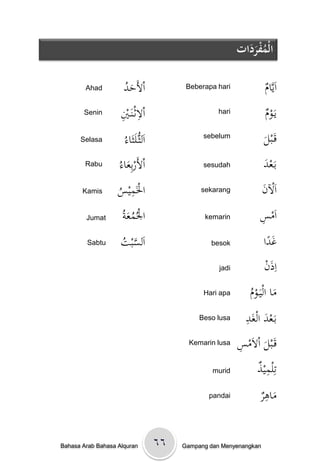 الْمُفْرَدَات
اَيَّامٌ Beberapa hari اَلْأَحَدُ Ahad
يَوْمٌ hari اَلْاِثْنَيْنِ Senin
قَبْلَ sebelum اَلثُّلَثَاءُ Selasa
بَعْدَ sesudah اَلْأَرْبِعَاءُ Rabu
اَلْآنَ sekarang الْخَمِيْسُ Kamis
اَمْسِ kemarin الْجُمُعَةُ Jumat
غَدًا besok اَلسَّبْتُ Sabtu
اِذَنْ jadi
مَا الْيَوْمُ Hari apa
بَعْدَ الْغَدِ Beso lusa
قَبْلَ اْلاَمْسِ Kemarin lusa
تِلْمِيْذٌ murid
مَاهِرٌ pandai
Bahasa Arab Bahasa Alquran ٦٦ Gampang dan Menyenangkan